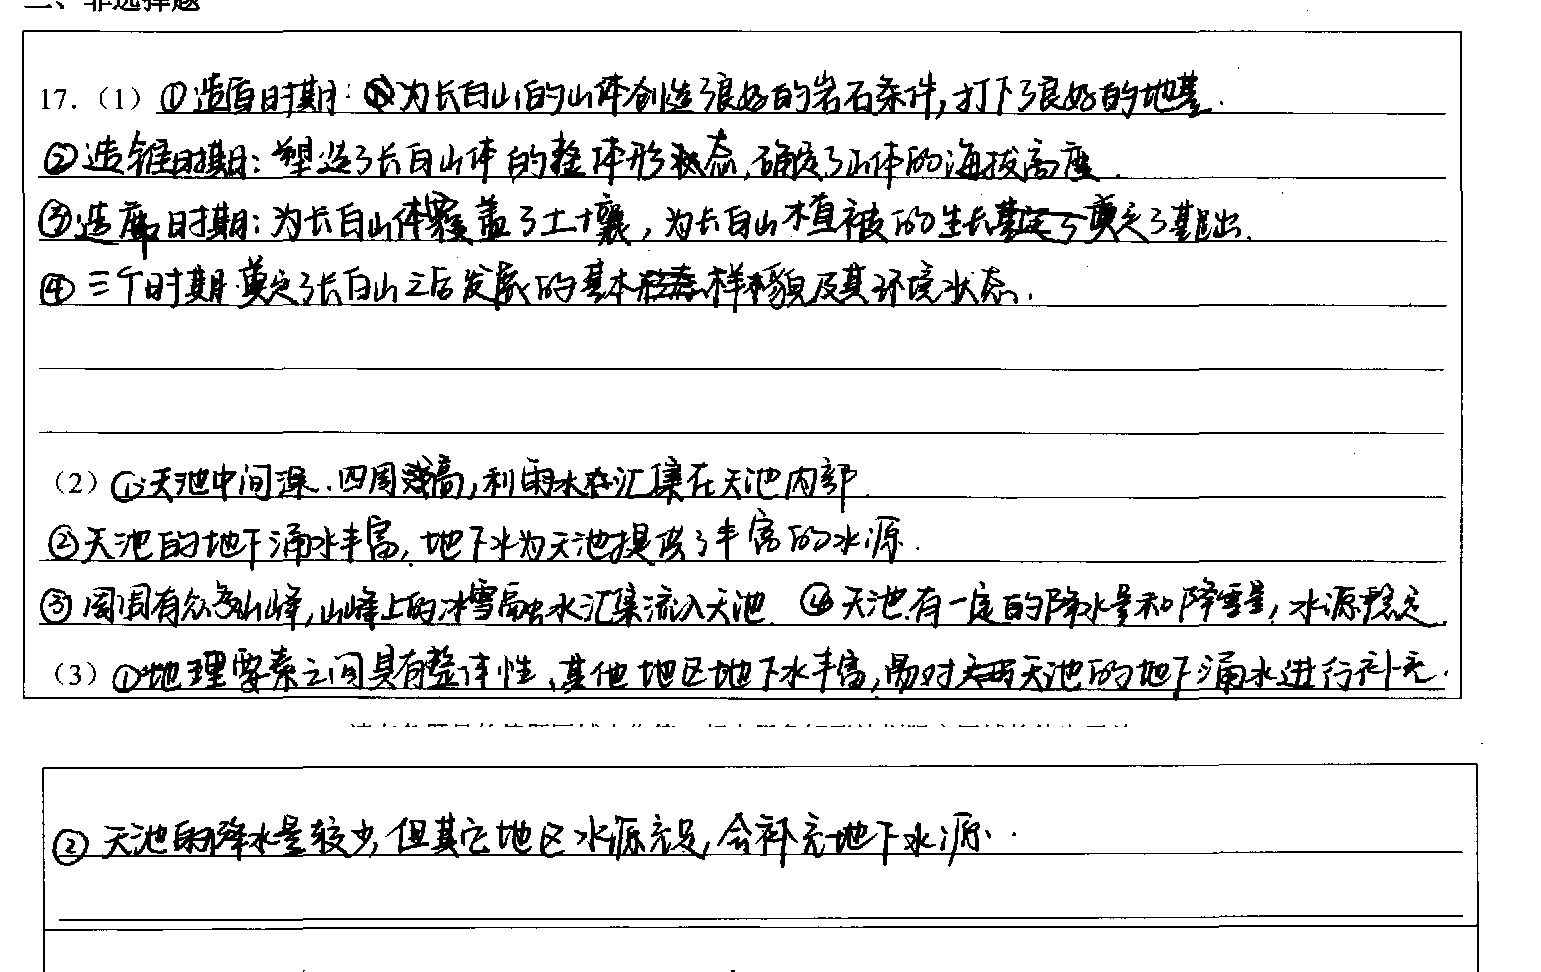 二、非选择题
17.（1）①造盾时期：为长白山的山体创造了很好的岩石条件，打下了很好的地基.
②造锥时期：塑造了长白山体的整体形状态，确定了山体的海拔高度.
③造席时期：为长白山体覆盖了土壤，为长白山植被的生长奠定了基础.
④三个时期奠定了长白山之后发展的基本样貌及其环境状态.
（2）①天池中间深.四周高，利雨水汇集在天池内部.
②天池的地下涌水丰富，地下水为天池提供了丰富的水源.
③周围有众多山峰，山峰上的冰雪融水汇集流入天池. ④天池有一定的降水量和降雪量，水源稳定.
（3）①地理要素之间具有整体性，其他地区地下水丰富，易对天池的地下涌水进行补充.
②天池的降水量较少，但其它地区水源充足，会补充地下水源.